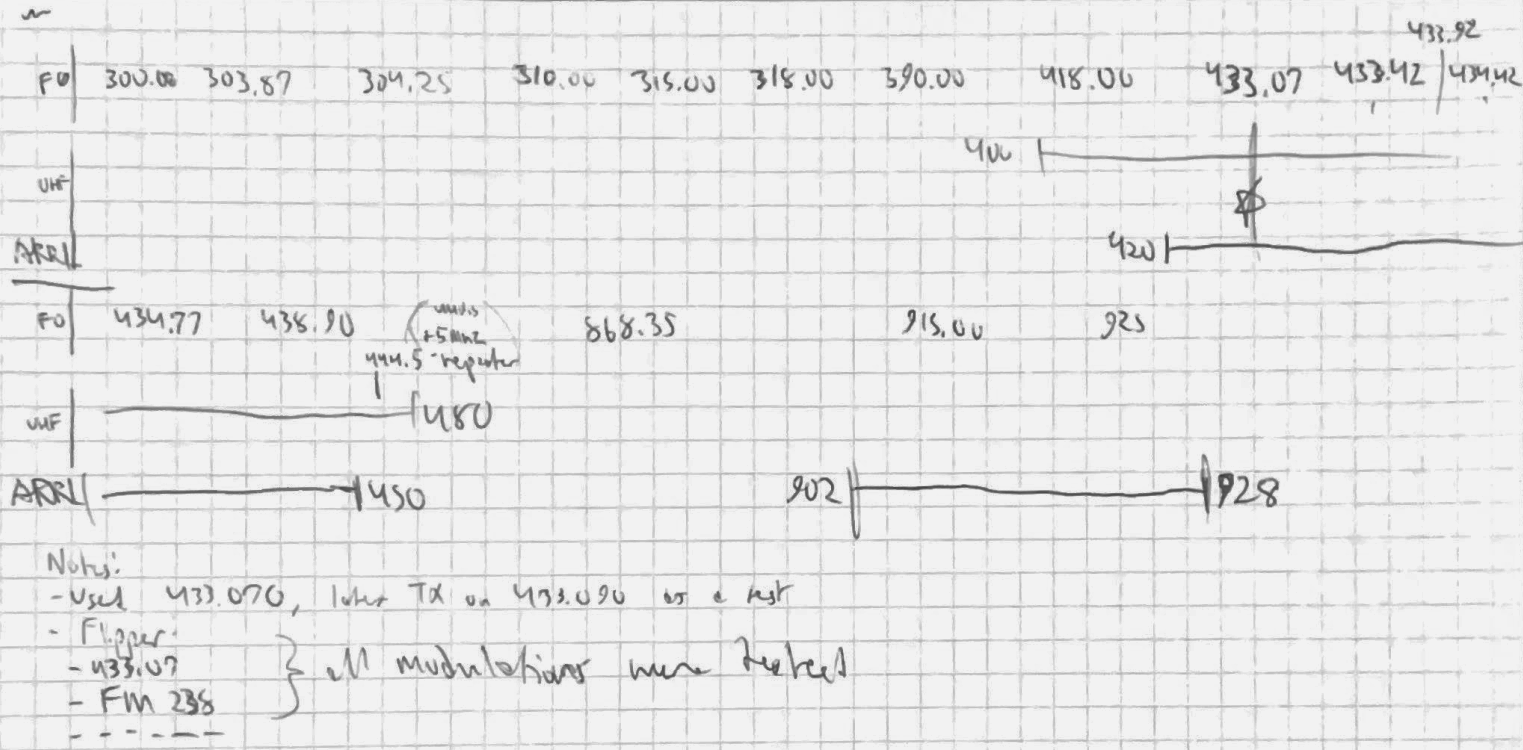 433.92
FO 300.00 303.87 304.25 310.00 315.00 318.00 390.00 418.00 433.07 433.42 434.42
400
UHF
ARRL
420
FO 434.77 438.90 868.35 915.00 925
+5MHz
444.5 - repeater
UHF 480
ARRL 450 902 928
Notes:
- Used 433.070, later TX on 433.090 as a test
- Flipper
- 433.07
- FM 238
all modulations were tested